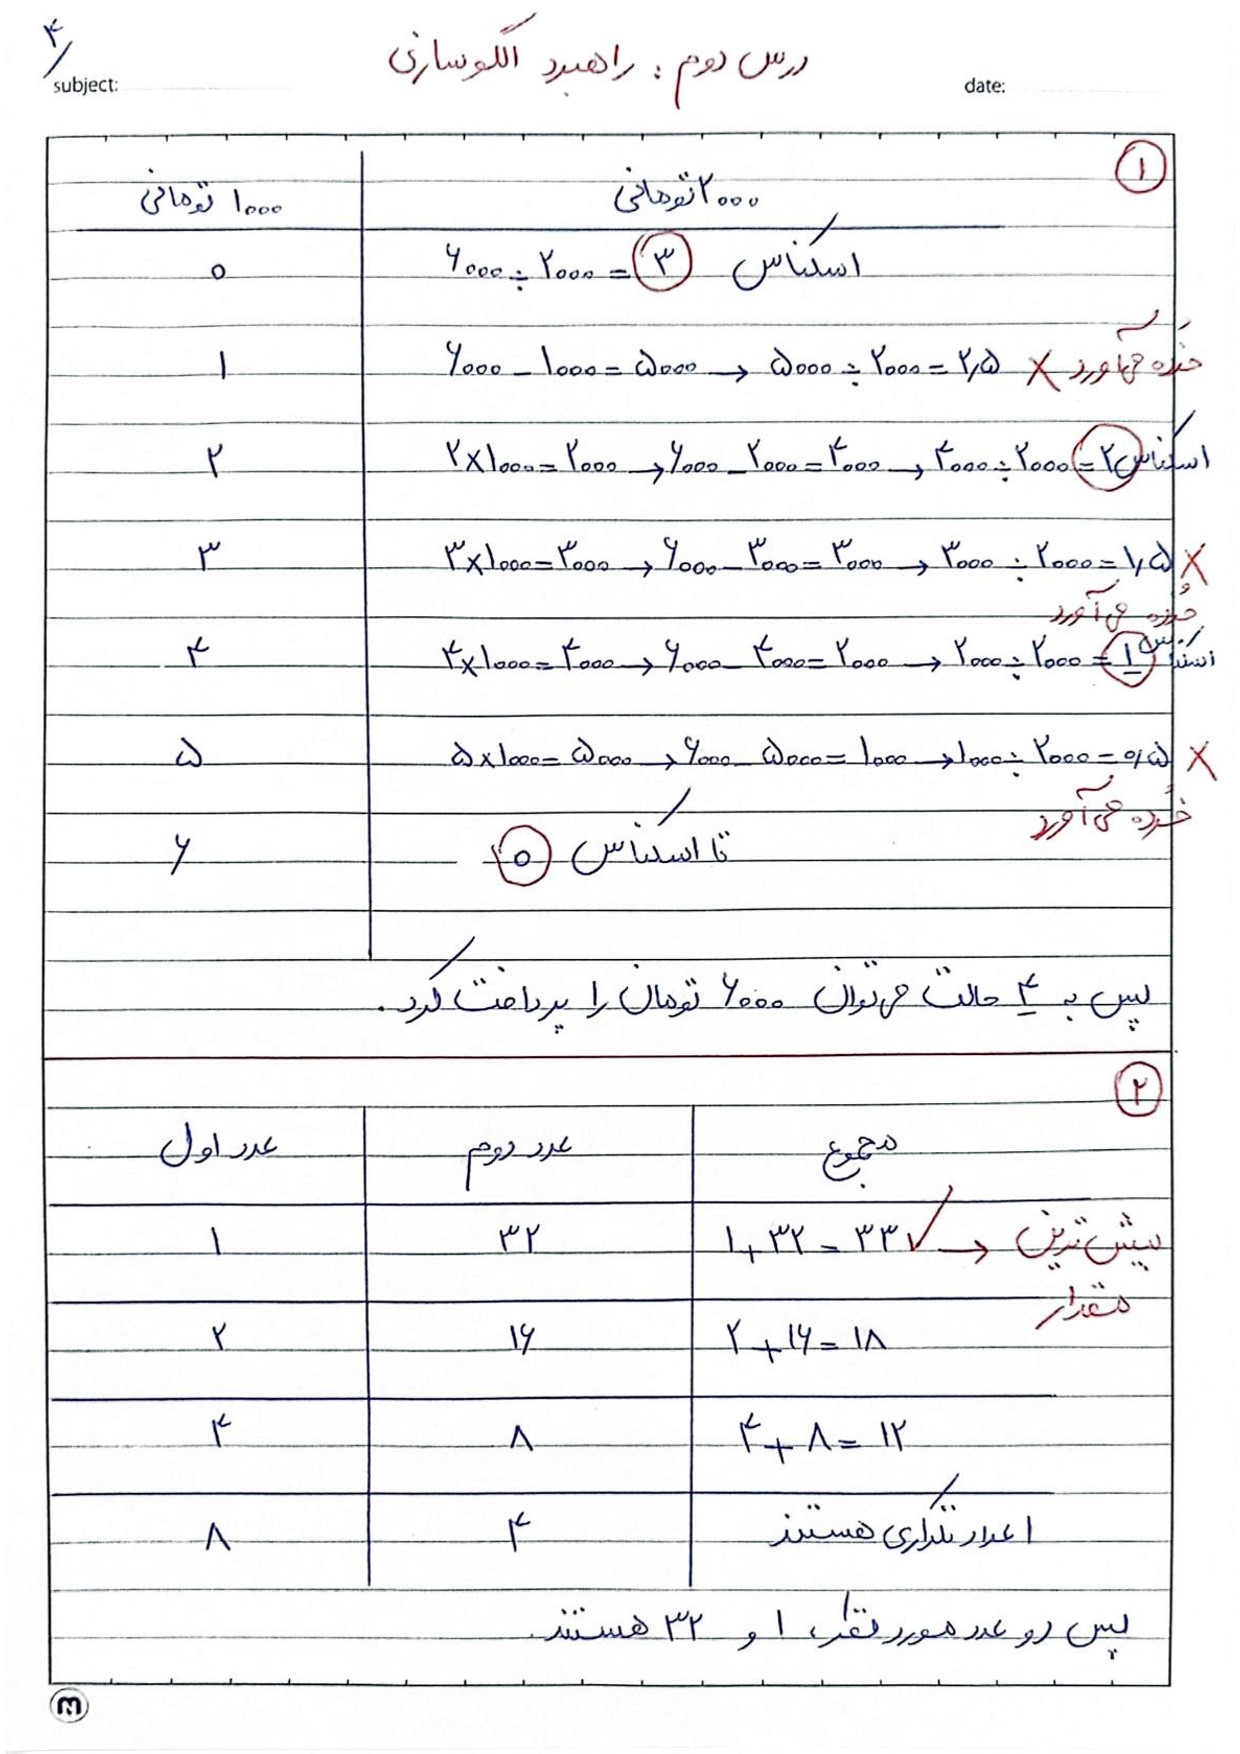 ۴
درس دوم: راهبرد الگوسازی
subject:
date:
۱
۱۰۰۰ تومانی
۲۰۰۰ تومانی
۰
۶۰۰۰ ÷ ۲۰۰۰ = ۳ اسکناس
۱
۶۰۰۰ - ۱۰۰۰ = ۵۰۰۰ → ۵۰۰۰ ÷ ۲۰۰۰ = ۲٫۵ × خُرده می‌آورد
۲
۲×۱۰۰۰ = ۲۰۰۰ → ۶۰۰۰ - ۲۰۰۰ = ۴۰۰۰ → ۴۰۰۰ ÷ ۲۰۰۰ = ۲ اسکناس
۳
۳×۱۰۰۰ = ۳۰۰۰ → ۶۰۰۰ - ۳۰۰۰ = ۳۰۰۰ → ۳۰۰۰ ÷ ۲۰۰۰ = ۱٫۵ ×
خُرده می‌آورد
۴
۴×۱۰۰۰ = ۴۰۰۰ → ۶۰۰۰ - ۴۰۰۰ = ۲۰۰۰ → ۲۰۰۰ ÷ ۲۰۰۰ = ۱ اسکناس
۵
۵×۱۰۰۰ = ۵۰۰۰ → ۶۰۰۰ - ۵۰۰۰ = ۱۰۰۰ → ۱۰۰۰ ÷ ۲۰۰۰ = ۰٫۵ ×
خُرده می‌آورد
۶
۰ تا اسکناس
پس به ۴ حالت می‌توان ۶۰۰۰ تومان را پرداخت کرد.
۲
عدد اول
عدد دوم
مجموع
۱
۳۲
۱ + ۳۲ = ۳۳ ✓ → بیش‌ترین
مقدار
۲
۱۶
۲ + ۱۶ = ۱۸
۴
۸
۴ + ۸ = ۱۲
۸
۴
اعداد تکراری هستند
پس دو عدد مورد نظر، ۱ و ۳۲ هستند.